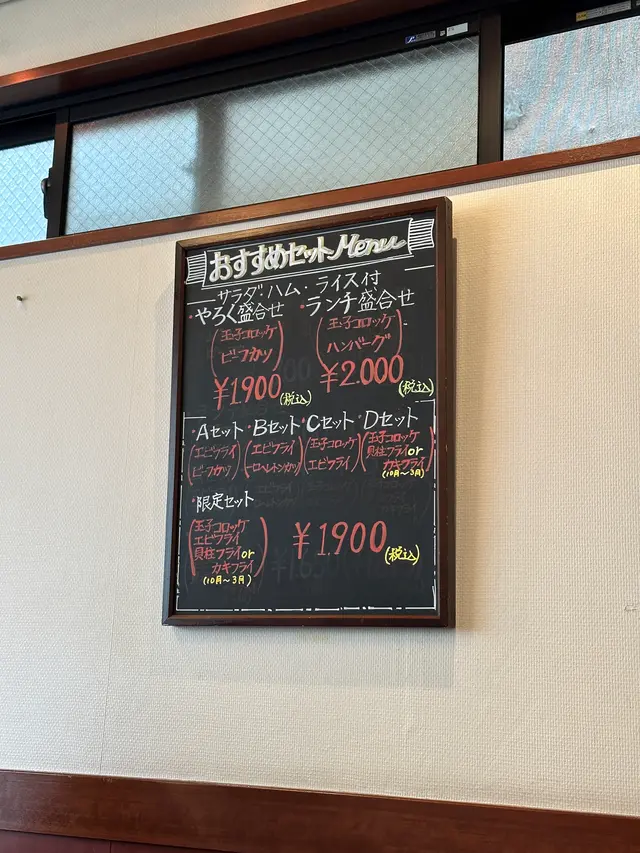 おすすめセットMenu
サラダ・ハム・ライス付
・やろく盛合せ
(玉子コロッケ
ビーフカツ)
¥1.900(税込)
・ランチ盛合せ
(玉子コロッケ
ハンバーグ)
¥2.000(税込)
・Aセット
(エビフライ
ビーフカツ)
・Bセット
(エビフライ
一口ヘレトンカツ)
・Cセット
(玉子コロッケ
エビフライ)
・Dセット
(玉子コロッケ
貝柱フライor
カキフライ)
(10月〜3月)
・限定セット
(玉子コロッケ
エビフライ
貝柱フライor
カキフライ)
(10月〜3月)
¥1.900(税込)